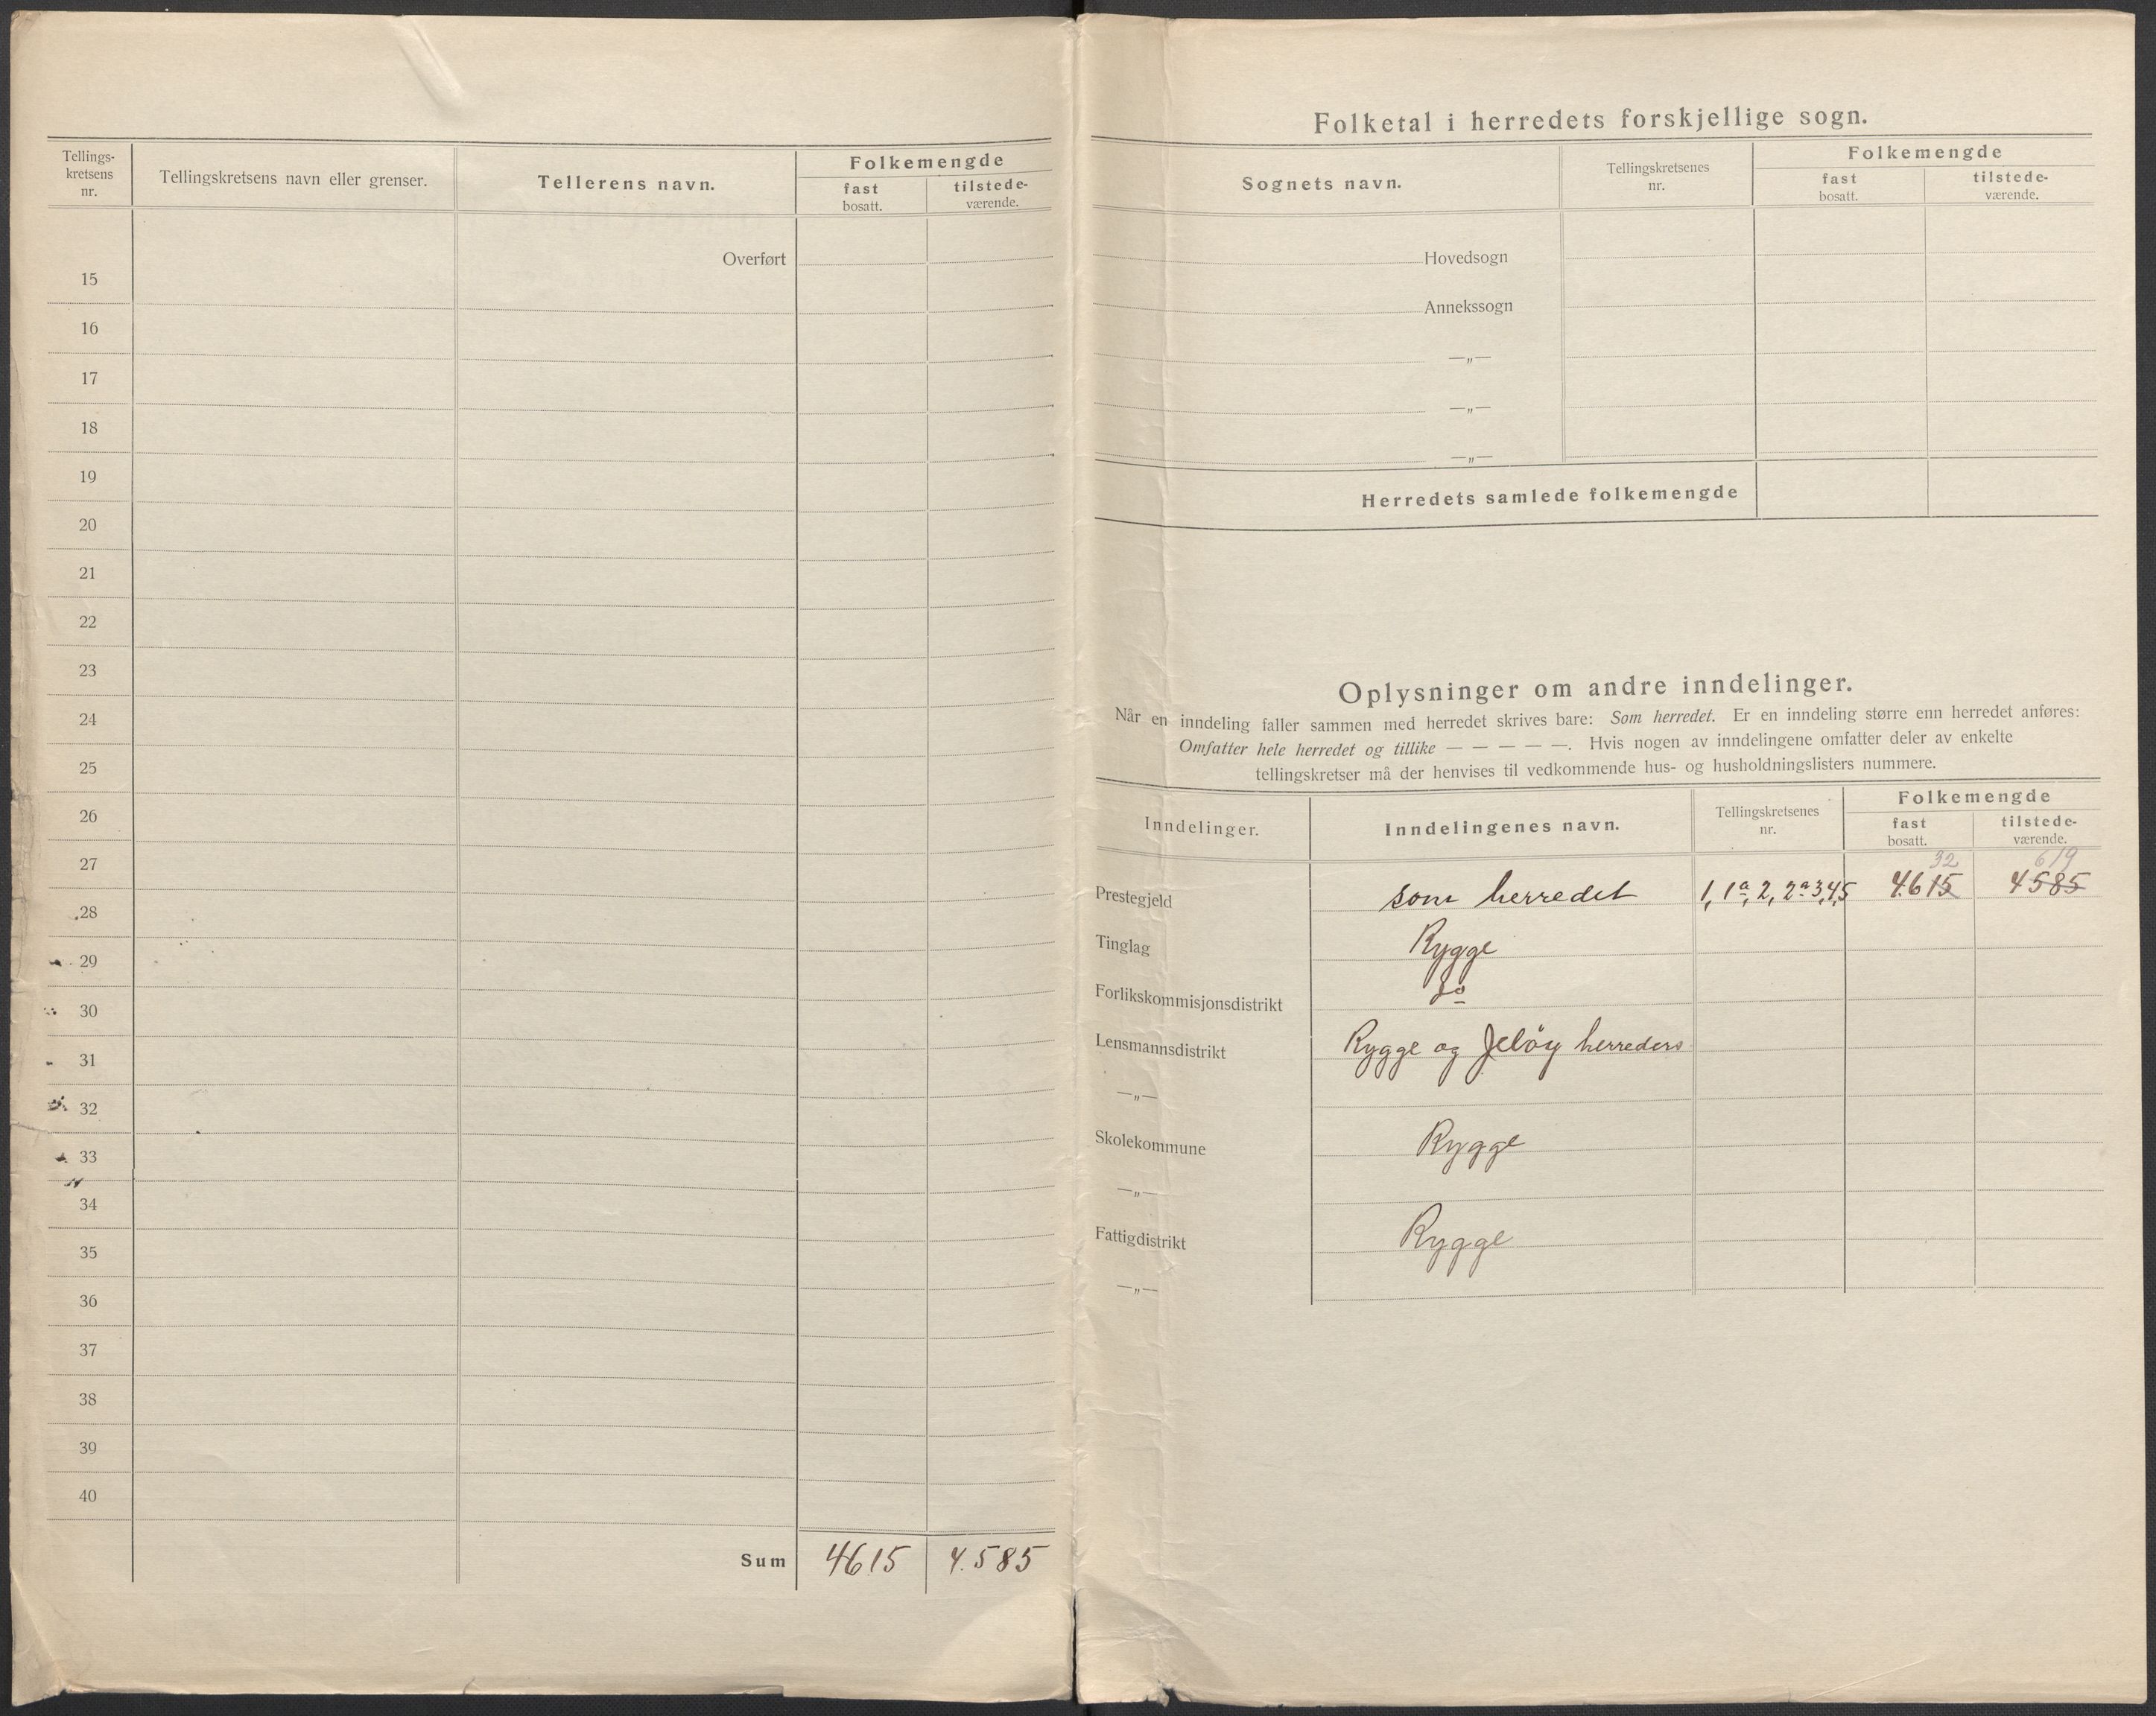 Tellings-
kretsens
nr.
Tellingskretsens navn eller grenser.
Tellerens navn.
Folkemengde
fast
bosatt.
tilstede-
værende.
Overført
15
16
17
18
19
20
21
22
23
24
25
26
27
28
29
30
31
32
33
34
35
36
37
38
39
40
Sum 4615 4.585
Folketal i herredets forskjellige sogn.
Sognets navn.
Tellingskretsenes
nr.
Folkemengde
fast
bosatt.
tilstede-
værende.
Hovedsogn
Annekssogn
—„—
—„—
—„—
Herredets samlede folkemengde
Oplysninger om andre inndelinger.
Når en inndeling faller sammen med herredet skrives bare: Som herredet. Er en inndeling større enn herredet anføres:
Omfatter hele herredet og tillike — — — — —. Hvis nogen av inndelingene omfatter deler av enkelte
tellingskretser må der henvises til vedkommende hus- og husholdningslisters nummere.
Inndelinger.
Inndelingenes navn.
Tellingskretsenes
nr.
Folkemengde
fast
bosatt.
tilstede-
værende.
32 619
Prestegjeld som herredet 1, 1a, 2, 2a 3,4,5 4615 4585
Tinglag Rygge
Forlikskommisjonsdistrikt do
Lensmannsdistrikt Rygge og Jeløy herreders
—„—
Skolekommune Rygge
—„—
Fattigdistrikt Rygge
—„—